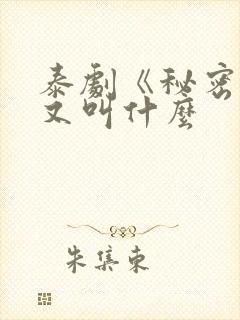 泰劇《秘密
又叫什麼
朱集東